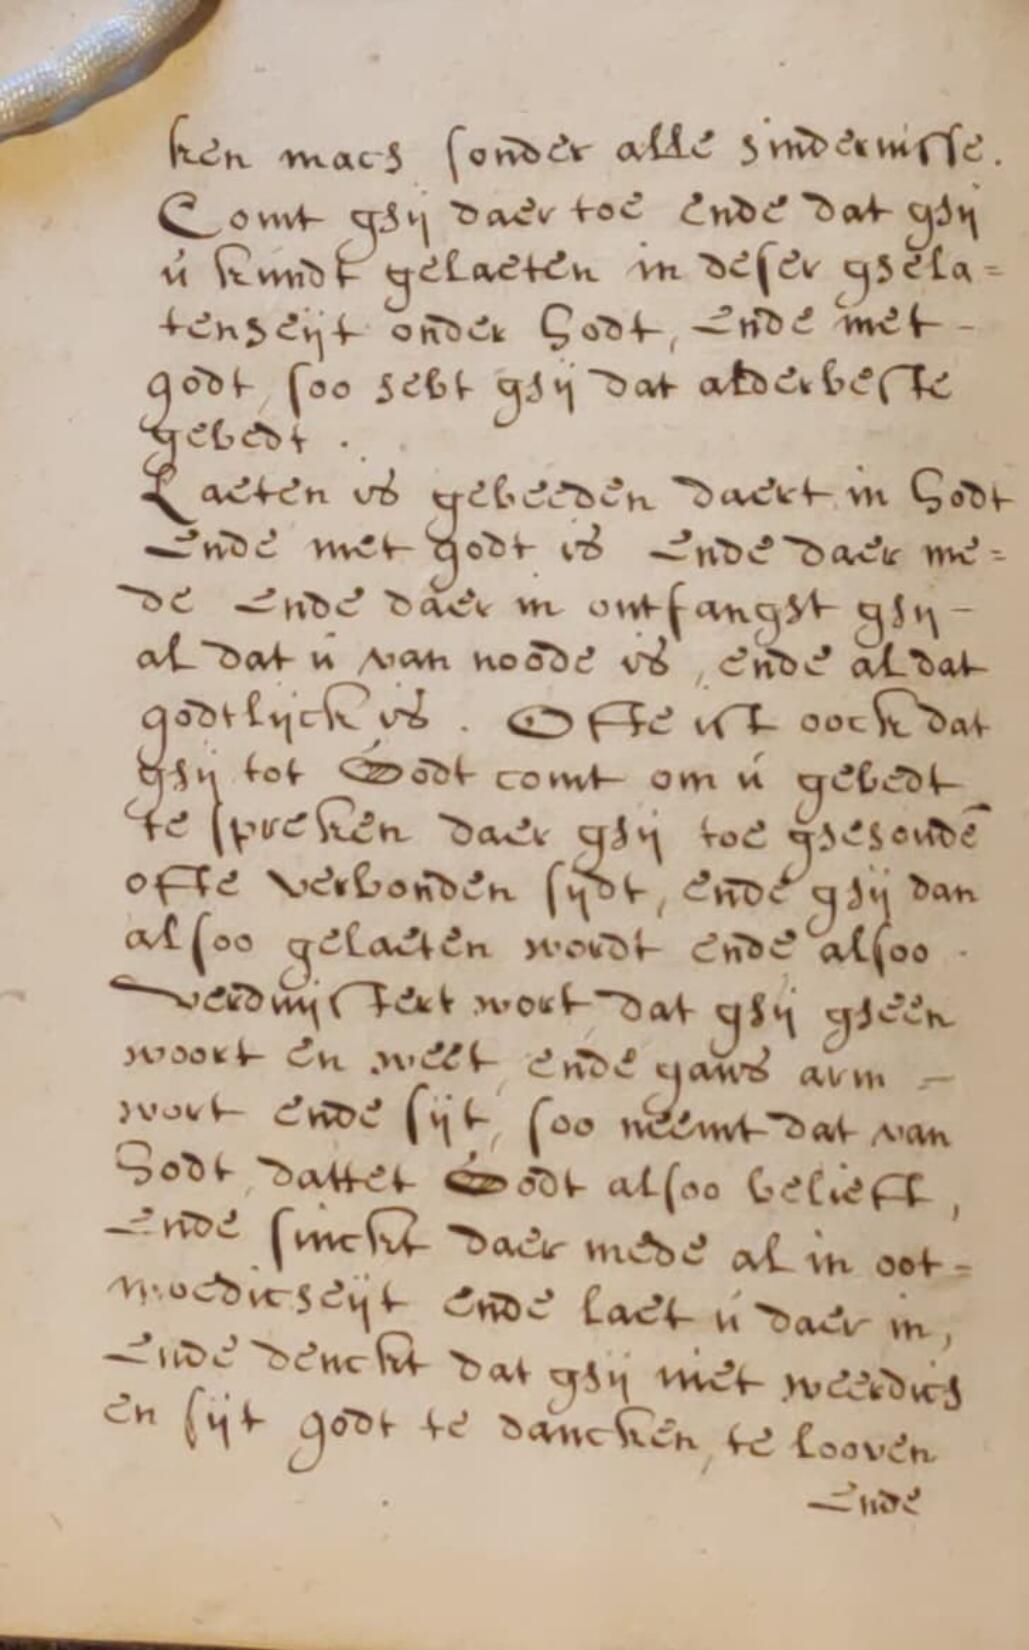 ken mach sonder alle hindernisse.
Comt ghij daer toe ende dat ghij
ú kundt gelaeten in deser ghela=
tenheijt onder Godt, Ende met -
godt, soo hebt ghij dat alderbeste
gebedt.
Laeten is gebeeden daert in Godt
Ende met godt is Ende daer me=
de Ende daer in ontfanght ghij -
al dat ú van noode is, ende al dat
godtlijck is. Ofte ist oock dat
ghij tot Godt comt om ú gebedt
te spreken daer ghij toe ghehoudē
ofte verbonden sijdt, ende ghij dan
alsoo gelaeten wordt ende alsoo
verduijstert wort dat ghij gheen
woort en weet, ende gans arm -
wort ende sijt, soo neemt dat van
Godt, dattet Godt alsoo belieft,
Ende sinckt daer mede al in oot=
moedicheijt ende laet ú daer in,
Ende denckt dat ghij niet weerdich
en sijt godt te dancken, te looven
Ende